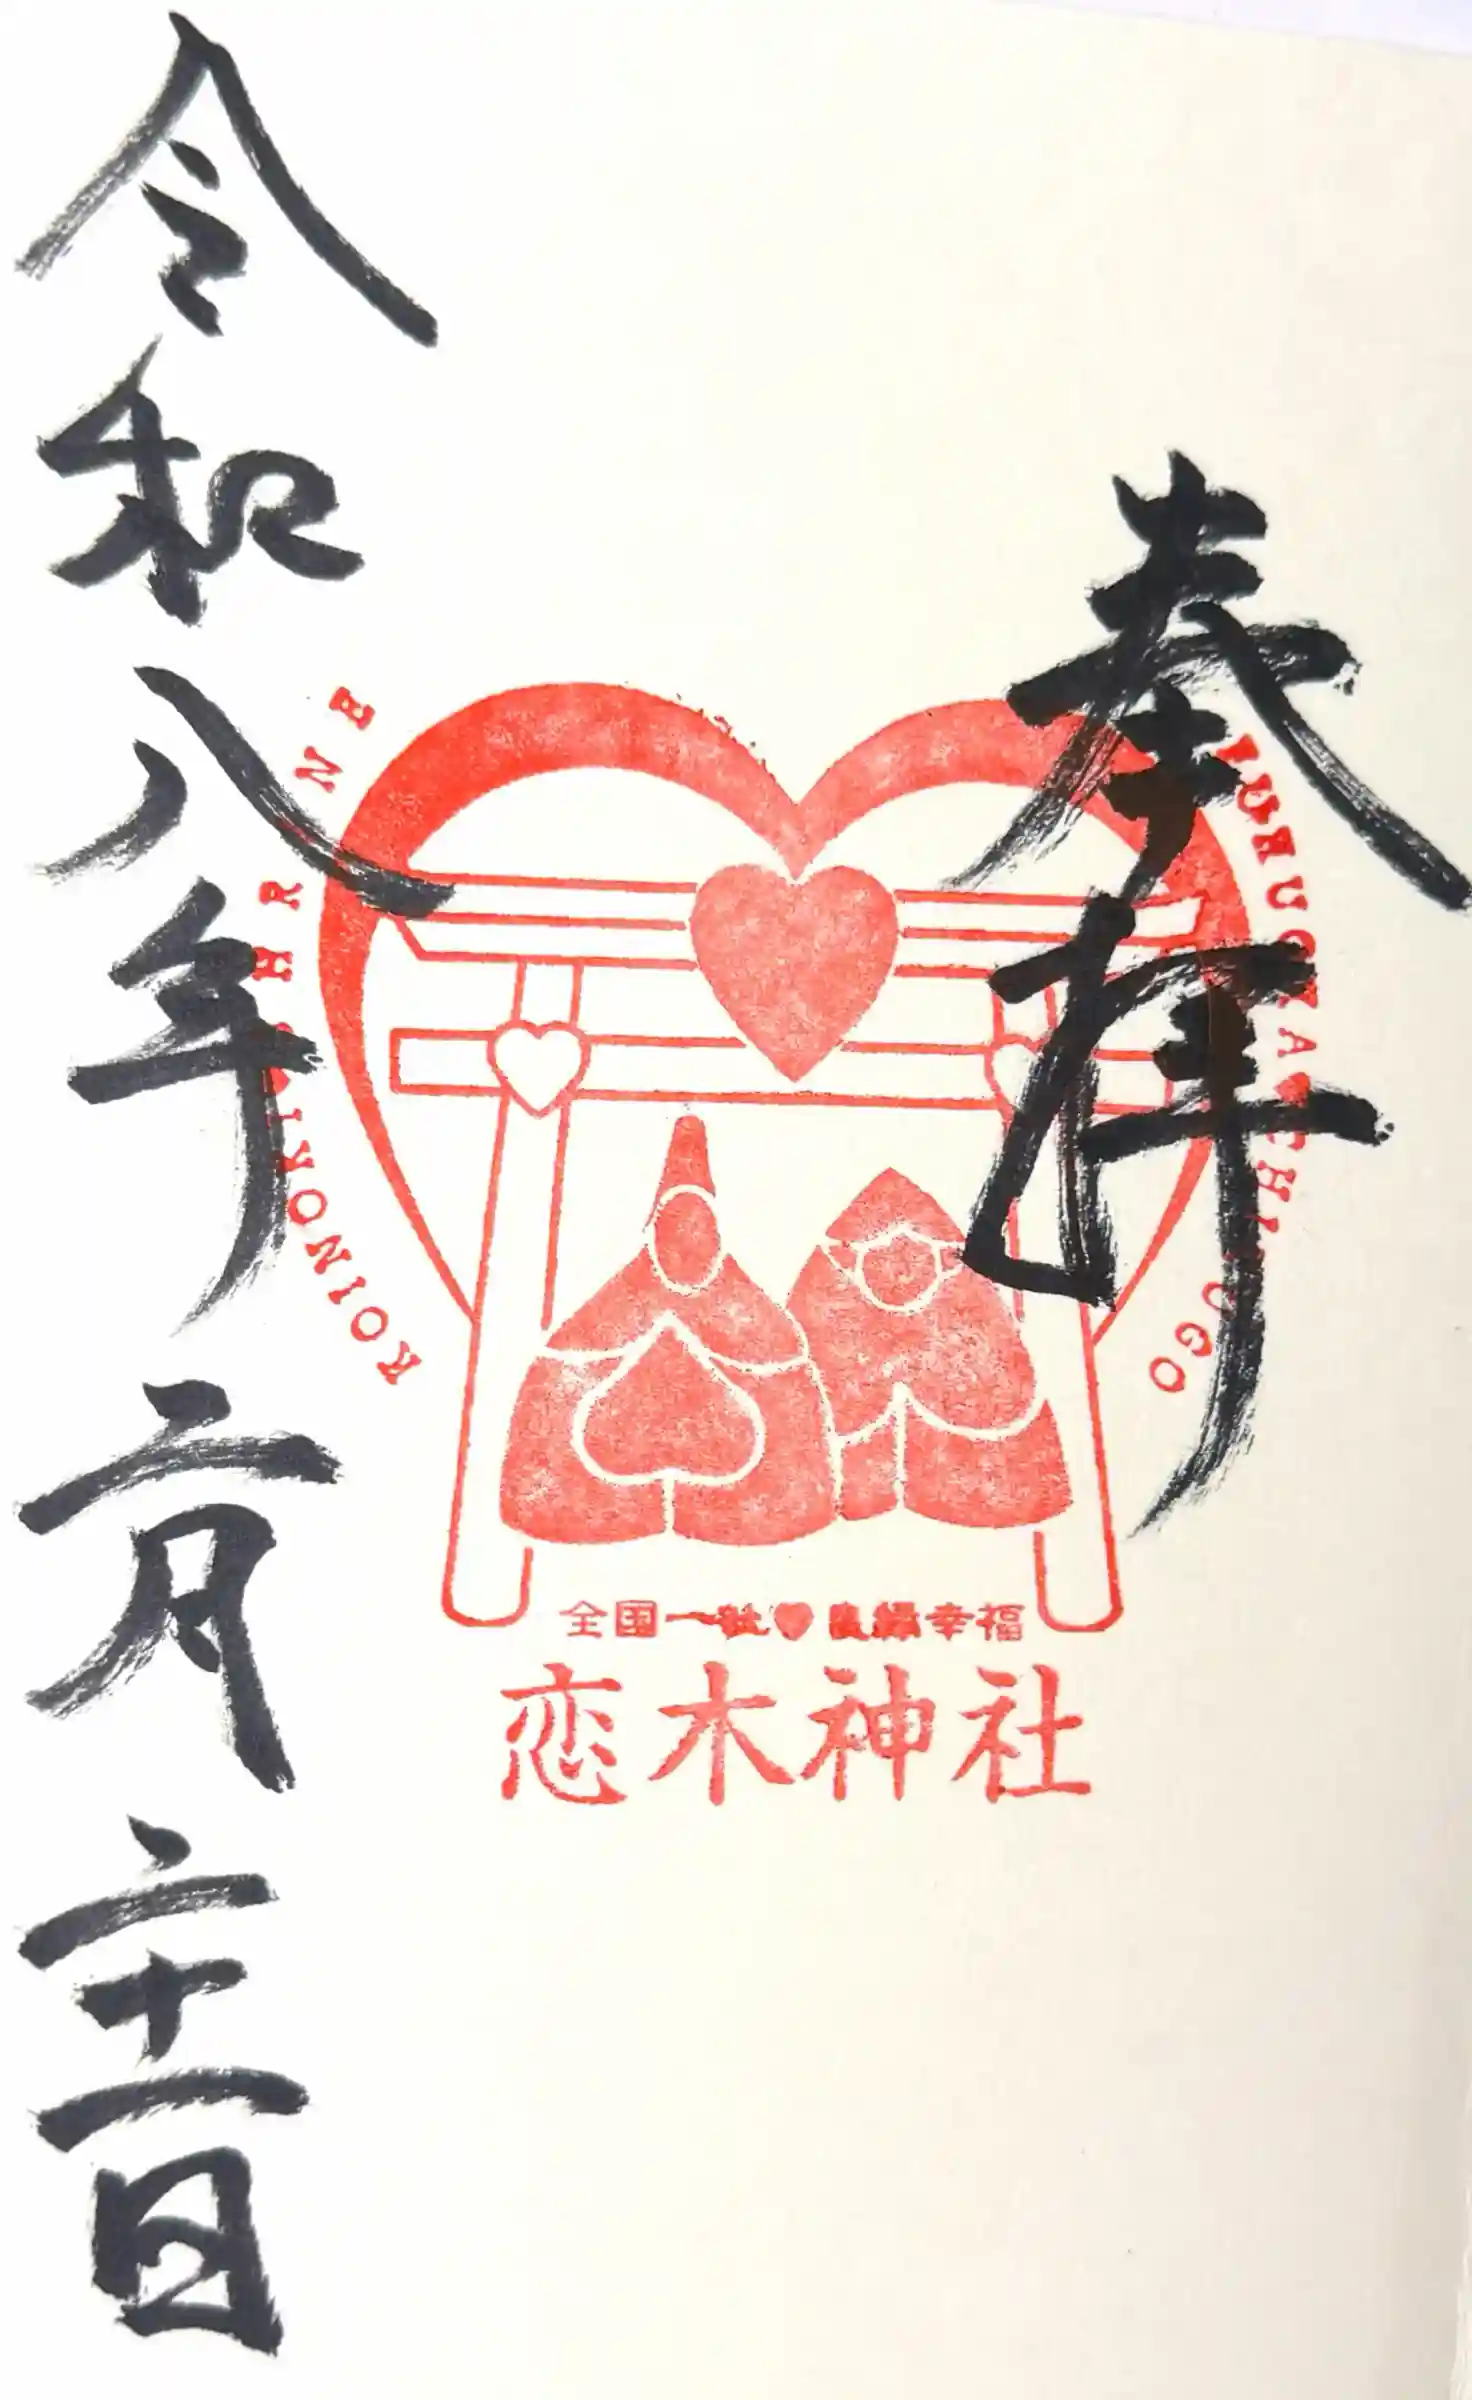 奉拝
KOINOKI♥SHRINE
FUKUOKA♥CHIKUGO
全国一社♥良縁幸福
恋木神社
令和八年二月二十一日